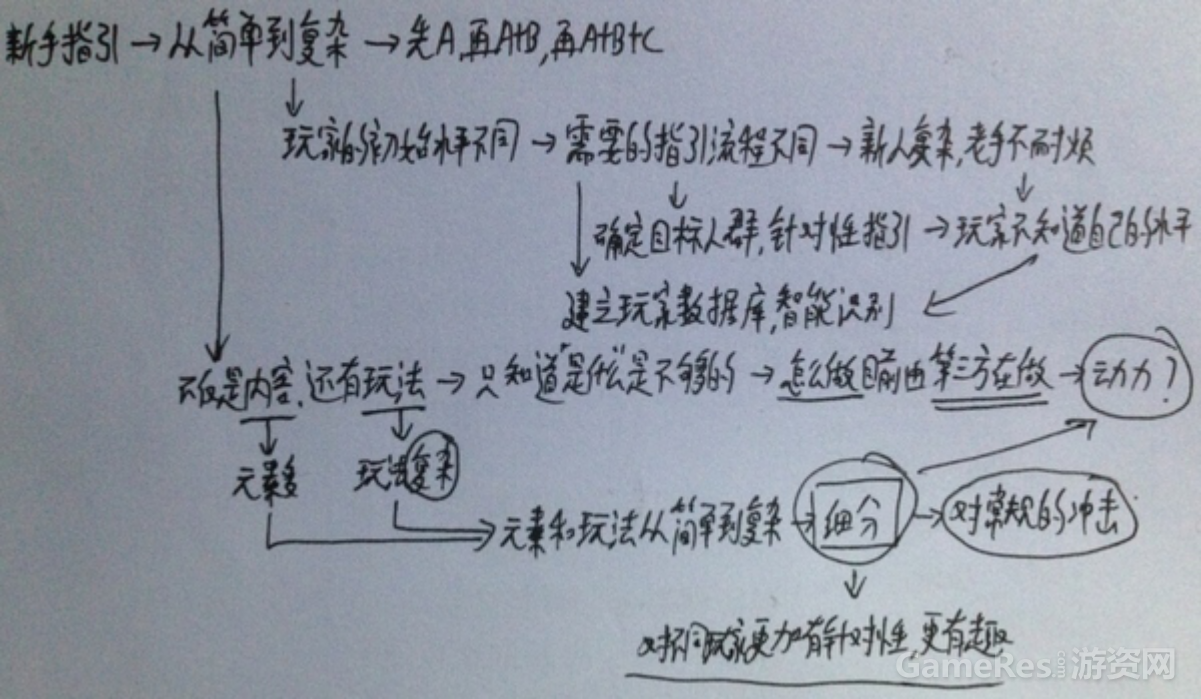 新手指引→从简单到复杂→先A,再A+B,再A+B+C
玩家的初始水平不同→需要的指引流程不同→新人复杂,老手不耐烦
确定目标人群,针对性指引→玩家不知道自己的水平
建立玩家数据库,智能识别
不仅是内容,还有玩法→只知道"是什么"是不够的→怎么做目前由第三方在做→动力?
元素多 玩法复杂
元素和玩法从简单到复杂→细分→对常规的冲击
对不同玩家更加有针对性,更有趣
GameRes.com游资网